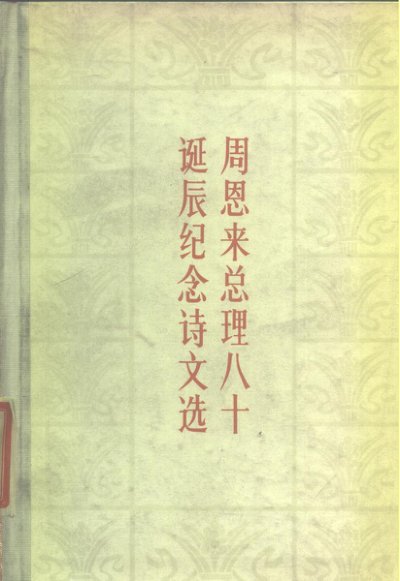 周恩来总理八十
诞辰纪念诗文选